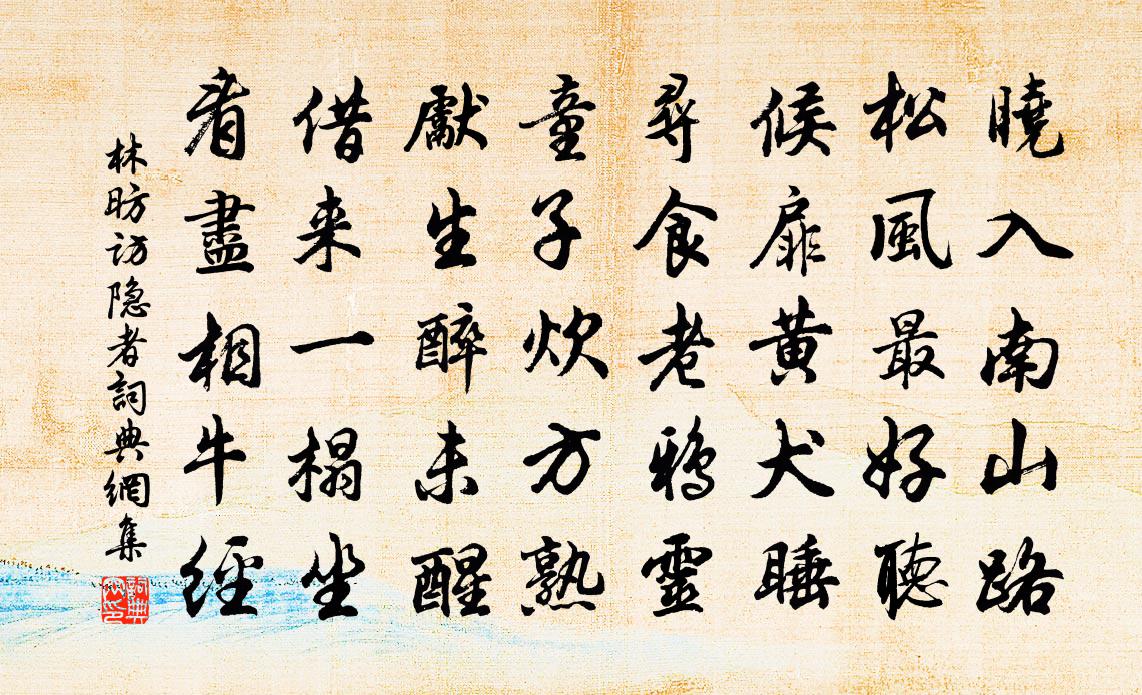 曉入南山路
松風最好聽
候扉黄犬睡
尋食老鴉靈
童子炊方熟
獻生醉未醒
借来一榻坐
看盡相牛經
林昉访隐者詞典網集